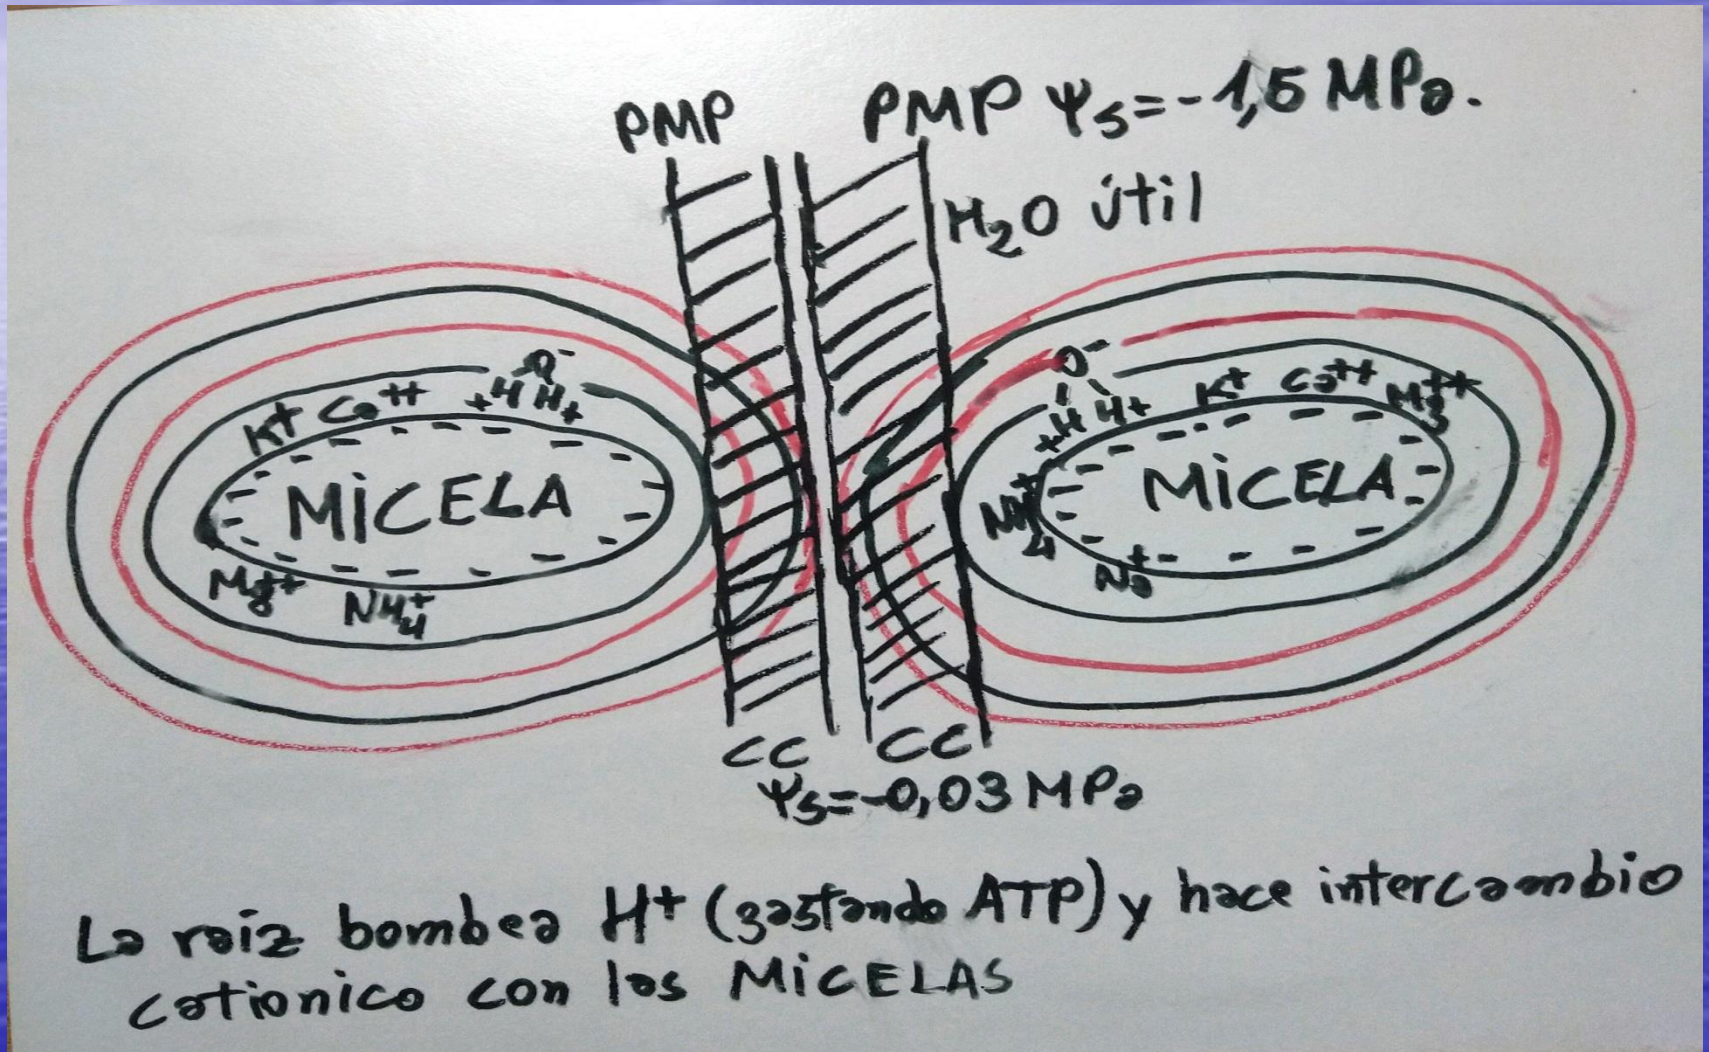 PMP PMP Ψs=-1,5 MPa.
H₂O útil
O⁻ O⁻
K⁺ Ca⁺⁺ +H H+ +H H+ K⁺ Ca⁺⁺ Mg⁺⁺
MiCELA MiCELA
NH₄⁺
Mg⁺⁺ NH₄⁺ Na⁺
CC CC
Ψs=-0,03 MPa
La raiz bombea H⁺ (gastando ATP) y hace intercambio
cationico con las MiCELAS